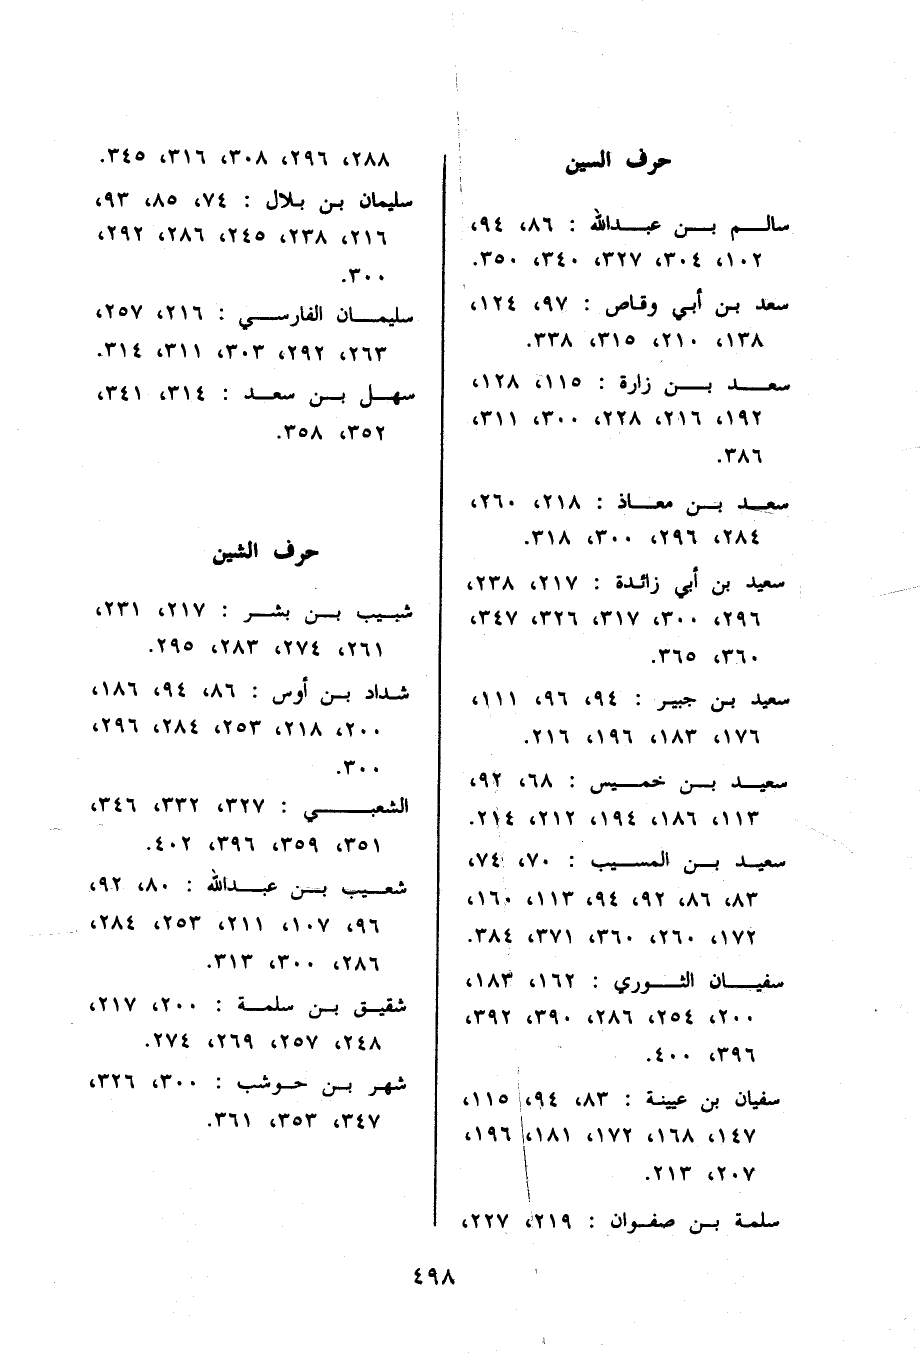 حرف السين
سالم بن عبدالله : ٨٦، ٩٤،
١٠٢، ٣٠٤، ٣٢٧، ٣٤٠، ٣٥٠.
سعد بن أبي وقاص : ٩٧، ١٢٤،
١٣٨، ٢١٠، ٣١٥، ٣٣٨.
سعد بن زارة : ١١٥، ١٢٨،
١٩٢، ٢١٦، ٢٢٨، ٣٠٠، ٣١١،
٣٨٦.
سعد بن معاذ : ٢١٨، ٢٦٠،
٢٨٤، ٢٩٦، ٣٠٠، ٣١٨.
سعيد بن أبي زائدة : ٢١٧، ٢٣٨،
٢٩٦، ٣٠٠، ٣١٧، ٣٢٦، ٣٤٧،
٣٦٠، ٣٦٥.
سعيد بن جبير : ٩٤، ٩٦، ١١١،
١٧٦، ١٨٣، ١٩٦، ٢١٦.
سعيد بن خميس : ٦٨، ٩٢،
١١٣، ١٨٦، ١٩٤، ٢١٢، ٢١٤.
سعيد بن المسيب : ٧٠، ٧٤،
٨٣، ٨٦، ٩٢، ٩٤، ١١٣، ١٦٠،
١٧٢، ٢٦٠، ٣٦٠، ٣٧١، ٣٨٤.
سفيان الثوري : ١٦٢، ١٨٣،
٢٠٠، ٢٥٤، ٢٨٦، ٣٩٠، ٣٩٢،
٣٩٦، ٤٠٠.
سفيان بن عيينة : ٨٣، ٩٤، ١١٥،
١٤٧، ١٦٨، ١٧٢، ١٨١، ١٩٦،
٢٠٧، ٢١٣.
سلمة بن صفوان : ٢١٩، ٢٢٧،
٢٨٨، ٢٩٦، ٣٠٨، ٣١٦، ٣٤٥.
سليمان بن بلال : ٧٤، ٨٥، ٩٣،
٢١٦، ٢٣٨، ٢٤٥، ٢٨٦، ٢٩٢،
٣٠٠.
سليمان الفارسي : ٢١٦، ٢٥٧،
٢٦٣، ٢٩٢، ٣٠٣، ٣١١، ٣١٤.
سهل بن سعد : ٣١٤، ٣٤١،
٣٥٢، ٣٥٨.
حرف الشين
شبيب بن بشر : ٢١٧، ٢٣١،
٢٦١، ٢٧٤، ٢٨٣، ٢٩٥.
شداد بن أوس : ٨٦، ٩٤، ١٨٦،
٢٠٠، ٢١٨، ٢٥٣، ٢٨٤، ٢٩٦،
٣٠٠.
الشعبي : ٣٢٧، ٣٣٢، ٣٤٦،
٣٥١، ٣٥٩، ٣٩٦، ٤٠٢.
شعيب بن عبدالله : ٨٠، ٩٢،
٩٦، ١٠٧، ٢١١، ٢٥٣، ٢٨٤،
٢٨٦، ٣٠٠، ٣١٣.
شقيق بن سلمة : ٢٠٠، ٢١٧،
٢٤٨، ٢٥٧، ٢٦٩، ٢٧٤.
شهر بن حوشب : ٣٠٠، ٣٢٦،
٣٤٧، ٣٥٣، ٣٦١.
٤٩٨